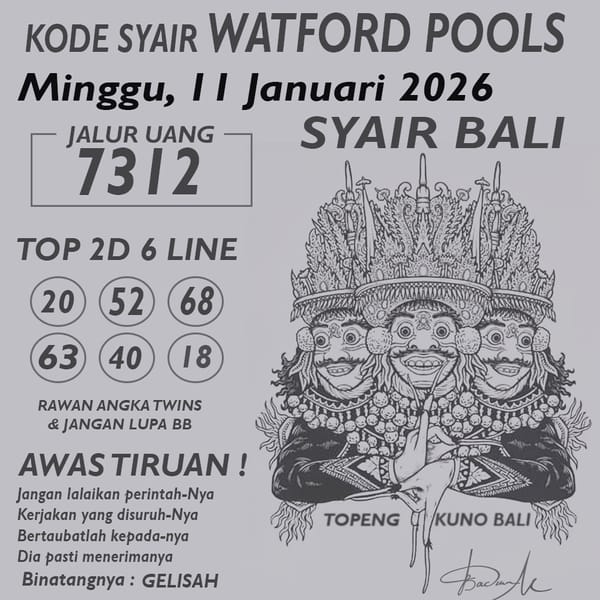 KODE SYAIR WATFORD POOLS
Minggu, 11 Januari 2026
JALUR UANG
7312
SYAIR BALI
TOP 2D 6 LINE
20 52 68
63 40 18
RAWAN ANGKA TWINS
& JANGAN LUPA BB
AWAS TIRUAN !
Jangan lalaikan perintah-Nya
Kerjakan yang disuruh-Nya
Bertaubatlah kepada-nya
Dia pasti menerimanya
Binatangnya : GELISAH
TOPENG KUNO BALI